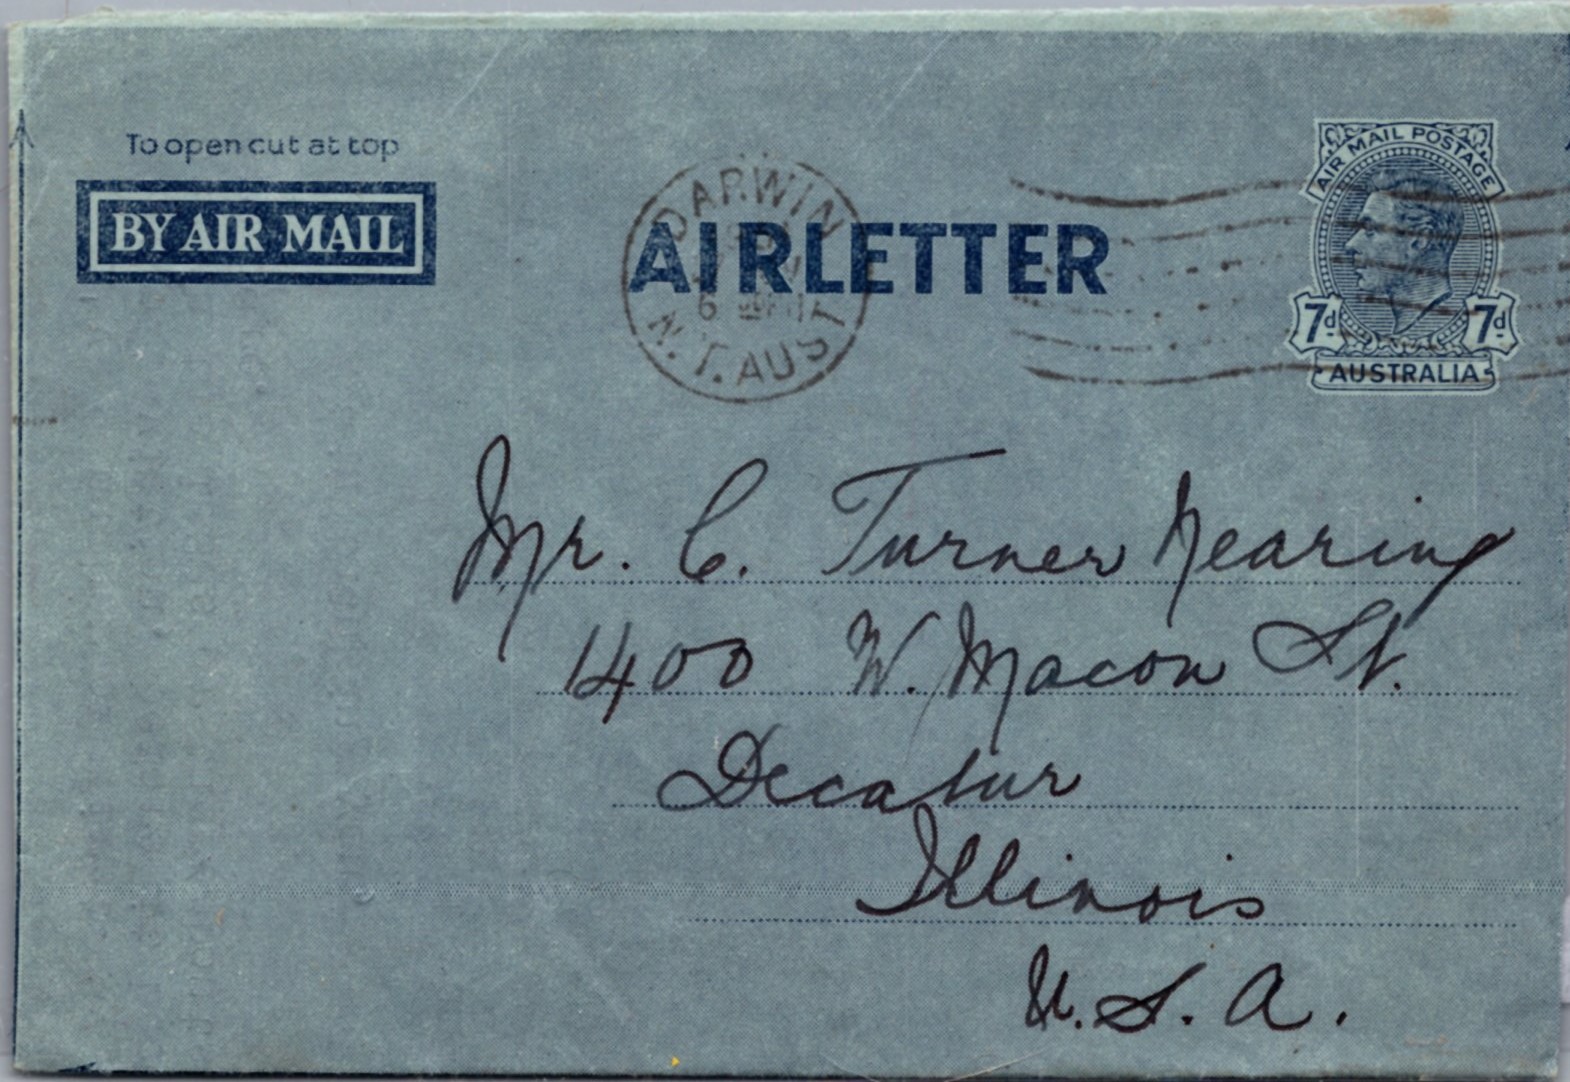 To open cut at top
BY AIR MAIL
AIRLETTER
DARWIN
6
N.T. AUST
AIR MAIL POSTAGE
7d 7d
AUSTRALIA
Mr. C. Turner Nearing
1400 W. Macon St.
Decatur
Illinois
U.S.A.